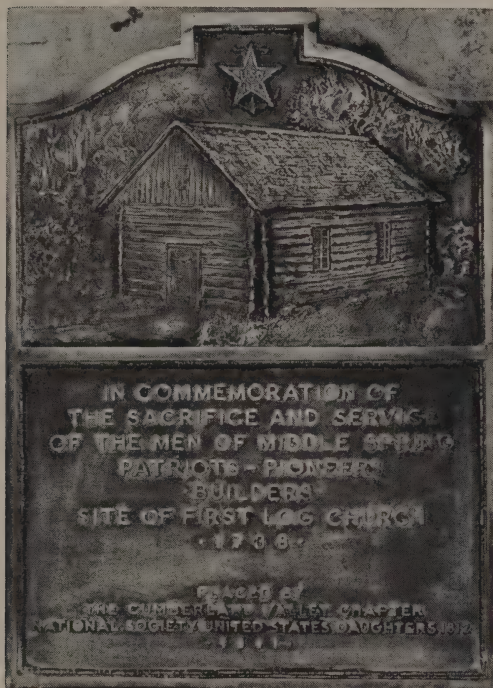 IN COMMEMORATION OF
THE SACRIFICE AND SERVICE
OF THE MEN OF MIDDLE SPRING
PATRIOTS - PIONEERS
BUILDERS
SITE OF FIRST LOG CHURCH
· 1738 ·
PLACED BY
THE CUMBERLAND VALLEY CHAPTER
NATIONAL SOCIETY UNITED STATES DAUGHTERS 1812